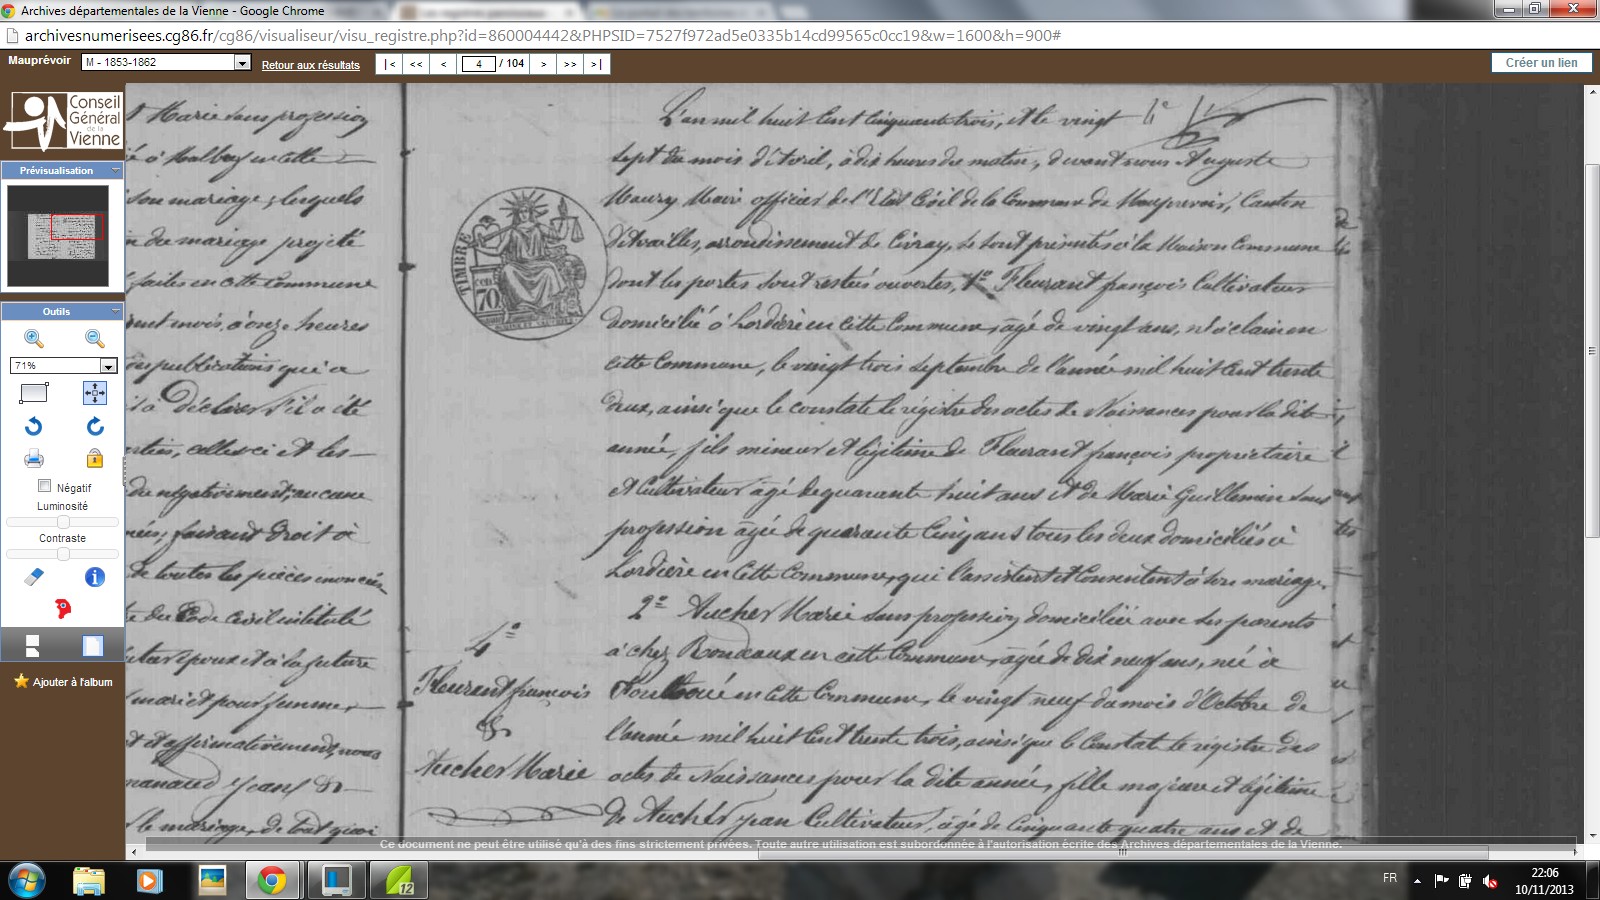 Archives départementales de la Vienne - Google Chrome
archivesnumerisees.cg86.fr/cg86/visualiseur/visu_registre.php?id=860004442&PHPSID=7527f972ad5e0335b14cd99565c0cc19&w=1600&h=900#
Mauprévoir
M - 1853-1862
Retour aux résultats
|< << < 4 / 104 > >> >|
Créer un lien
Conseil
Général
de la
Vienne
Prévisualisation
Outils
71%
Négatif
Luminosité
Contraste
Ajouter à l'album
Marie sans profession
en cette
son mariage ; lesquels
du mariage projeté
faites en cette Commune
mois, à onze heures
publications qui a
à Déclarer S'il a été
celles ci et les
négativement, aucune
faisant Droit à
de toutes les pièces
du Code Civil intitulé
époux et à la future
mari et pour femme,
et affirmativement, nous
le mariage, de tout quoi
TIMBRE
70
4°
Fleurant françois
&
Aucher Marie
L'an mil huit Cent Cinquante trois, et le vingt
sept du mois d'Avril, à dix heures du matin, devant nous Auguste
Maury Maire officier de l'Etat Civil de la Commune de Mauprevoir, Canton
d'Availles, arrondissement de Civray, Se sont présentés à la Maison Commune
dont les portes sont restées ouvertes, 1° Fleurant françois Cultivateur
domicilié à Lordière en Cette Commune, âgé de vingt ans, né à en
cette Commune, le vingt trois Septembre de l'année mil huit Cent trente
deux, ainsi que le constate le régistre des actes de Naissances pour la dite
année, fils mineur et légitime de Fleurant françois propriétaire
et Cultivateur âgé de quarante huit ans et de Marie Guillemin sans
profession âgée de quarante Cinq ans tous les deux domiciliés à
Lordière en Cette Commune, qui l'assistent et Consentent à Son mariage,
2° Aucher Marie Sans profession domiciliée avec Ses parents
à chez Rondeaux en cette Commune, âgée de dix neuf ans, née à
en Cette Commune, le vingt neuf du mois d'Octobre de
l'année mil huit Cent trente trois, ainsi que le Constate le régistre des
actes de Naissances pour la dite année, fille majeure et légitime
de Aucher Jean Cultivateur, âgé de Cinquante quatre ans et de
Ce document ne peut être utilisé qu'à des fins strictement privées. Toute autre utilisation est subordonnée à l'autorisation écrite des Archives départementales de la Vienne.
12
FR
22:06
10/11/2013